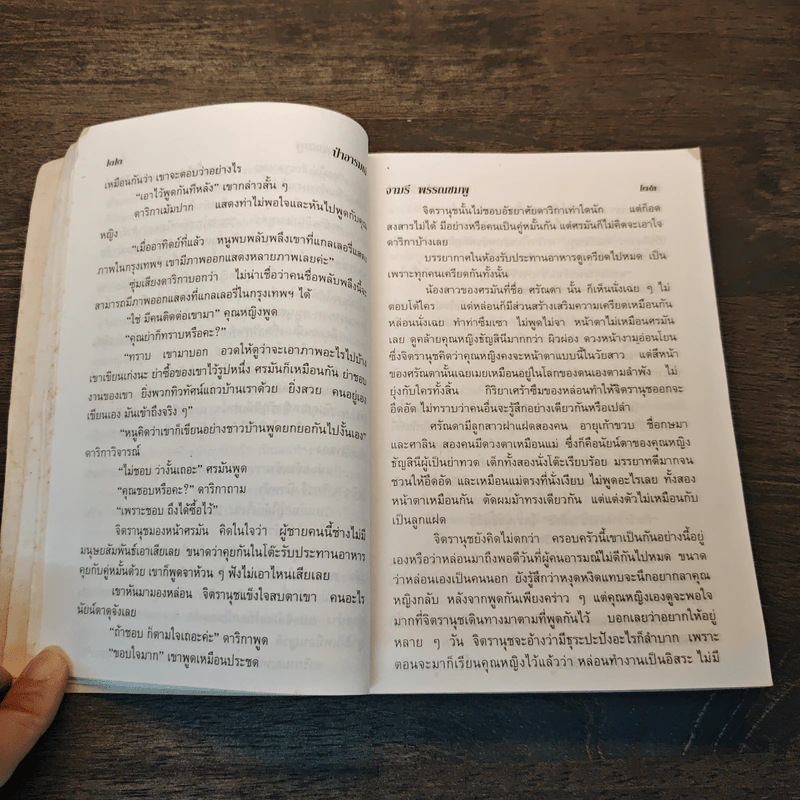 ป่าอารมณ์
เหมือนกันว่า เขาจะตอบว่าอย่างไร
“เอาไว้พูดกันทีหลัง” เขากล่าวสั้น ๆ
ดาริกาเม้มปาก แสดงท่าไม่พอใจและหันไปพูดกับคุณ
หญิง
“เมื่ออาทิตย์ที่แล้ว หนูพบพลับพลึงเขาที่แกลเลอรี่แสดง
ภาพในกรุงเทพฯ เขามีภาพออกแสดงหลายภาพเลยค่ะ”
ซุ่มเสียงดาริกาบอกว่า ไม่น่าเชื่อว่าคนชื่อพลับพลึงนี้จะ
สามารถมีภาพออกแสดงที่แกลเลอรี่ในกรุงเทพฯ ได้
“ใช่ มีคนติดต่อเขามา” คุณหญิงพูด
“คุณย่าก็ทราบหรือคะ?”
“ทราบ เขามาบอก อวดให้ดูว่าจะเอาภาพอะไรไปบ้าง
เขาเขียนเก่งนะ ย่าซื้อของเขาไว้รูปหนึ่ง ศรมันก็เหมือนกัน ย่าชอบ
งานของเขา ยิ่งพวกทิวทัศน์แถวบ้านเราด้วย ยิ่งสวย คนอยู่เอง
เขียนเอง มันเข้าถึงจริง ๆ”
“หนูคิดว่าเขาก็เขียนอย่างชาวบ้านพูดยกยอกันไปงั้นเอง”
ดาริกาวิจารณ์
“ไม่ชอบ ว่างั้นเถอะ” ศรมันพูด
“คุณชอบหรือคะ?” ดาริกาถาม
“เพราะชอบ ถึงได้ซื้อไว้”
จิตรานุชมองหน้าศรมัน คิดในใจว่า ผู้ชายคนนี้ช่างไม่มี
มนุษยสัมพันธ์เอาเสียเลย ขนาดว่าคุยกันในโต๊ะรับประทานอาหาร
คุยกับคู่หมั้นด้วย เขาก็พูดจาห้วน ๆ ฟังไม่เอาไหนเสียเลย
เขาหันมามองหล่อน จิตรานุชแข็งใจสบตาเขา คนอะไร
นัยน์ตาดุจังเลย
“ถ้าชอบ ก็ตามใจเถอะค่ะ” ดาริกาพูด
“ขอบใจมาก” เขาพูดเหมือนประชด
จามรี พรรณชมพู
จิตรานุชนั้นไม่ชอบอัธยาศัยดาริกาเท่าใดนัก แต่ก็อด
สงสารไม่ได้ มีอย่างหรือคนเป็นคู่หมั้นกัน แต่ศรมันก็ไม่คิดจะเอาใจ
ดาริกาบ้างเลย
บรรยากาศในห้องรับประทานอาหารดูเครียดไปหมด เป็น
เพราะทุกคนเครียดกันทั้งนั้น
น้องสาวของศรมันที่ชื่อ ศรัณดา นั้น ก็เห็นนั่งเฉย ๆ ไม่
ตอบโต้ใคร แต่หล่อนก็มีส่วนสร้างเสริมความเครียดเหมือนกัน
หล่อนนั่งเฉย ทำท่าซึมเซา ไม่พูดไม่จา หน้าตาไม่เหมือนศรมัน
เลย ดูคล้ายคุณหญิงชัญสินีมากกว่า ผิวผ่อง ดวงหน้างามอ่อนโยน
ซึ่งจิตรานุชคิดว่าคุณหญิงคงจะหน้าตาแบบนี้ในวัยสาว แต่สีหน้า
ของศรัณดานั้นเฉยเมยเหมือนอยู่ในโลกของตนเองตามลำพัง ไม่
ยุ่งกับใครทั้งสิ้น กิริยาเศร้าซึมของหล่อนทำให้จิตรานุชออกจะ
อึดอัด ไม่ทราบว่าคนอื่นจะรู้สึกอย่างเดียวกันหรือเปล่า
ศรัณดามีลูกสาวฝาแฝดสองคน อายุเก้าขวบ ชื่อกษมา
และศาลิน สองคนมีดวงตาเหมือนแม่ ซึ่งก็คือนัยน์ตาของคุณหญิง
ชัญสินีผู้เป็นย่าทวด เด็กทั้งสองนั่งโต๊ะเรียบร้อย มรรยาทดีมากจน
ชวนให้อึดอัด และเหมือนแม่ตรงที่นั่งเงียบ ไม่พูดอะไรเลย ทั้งสอง
หน้าตาเหมือนกัน ตัดผมม้าทรงเดียวกัน แต่แต่งตัวไม่เหมือนกับ
เป็นลูกแฝด
จิตรานุชยังคิดไม่ตกว่า ครอบครัวนี้เขาเป็นกันอย่างนี้อยู่
เองหรือว่าหล่อนมาถึงพอดีวันที่ผู้คนอารมณ์ไม่ดีกันไปหมด ขนาด
ว่าหล่อนเองเป็นคนนอก ยังรู้สึกว่าหงุดหงิดแทบจะนึกอยากลาคุณ
หญิงกลับ หลังจากพูดกันเพียงคร่าว ๆ แต่คุณหญิงเองดูจะพอใจ
มากที่จิตรานุชเดินทางมาตามที่พูดกันไว้ บอกเลยว่าอยากให้อยู่
หลาย ๆ วัน จิตรานุชจะอ้างว่ามีธุระปะปังอะไรก็ลำบาก เพราะ
ตอนจะมาก็เรียนคุณหญิงไว้แล้วว่า หล่อนทำงานเป็นอิสระ ไม่มี